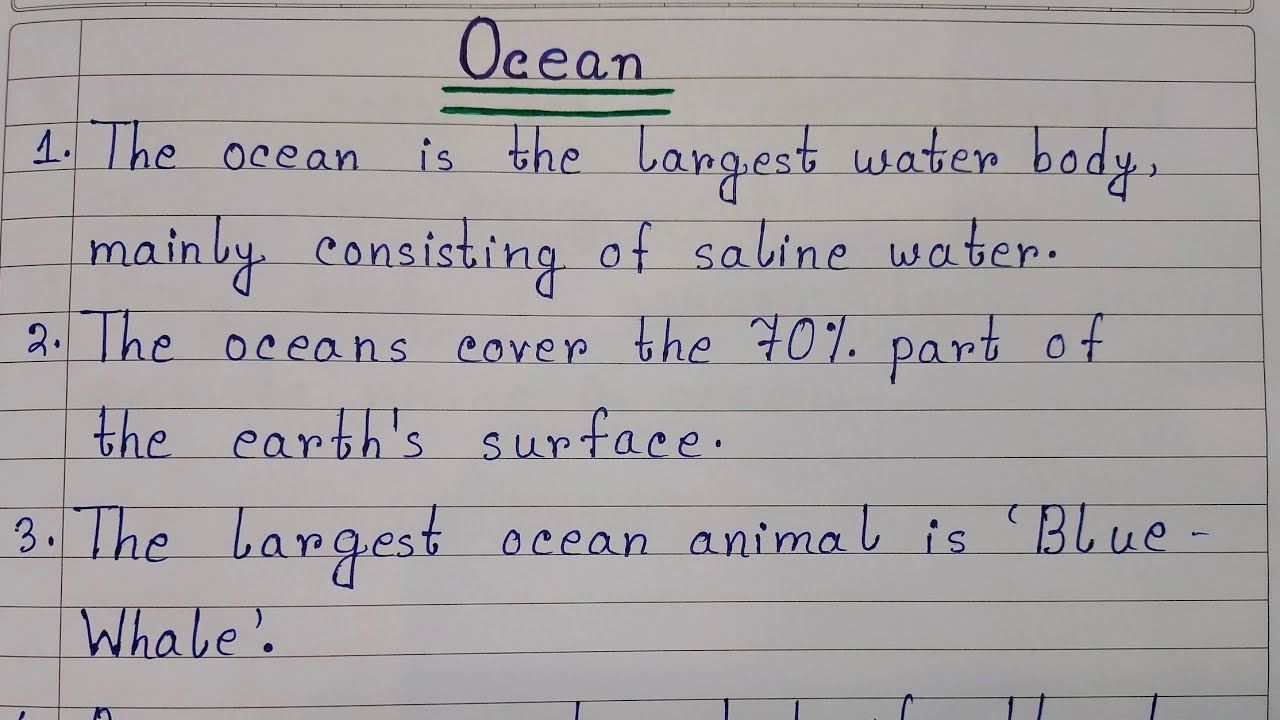 Ocean
1. The ocean is the largest water body,
mainly consisting of saline water.
2. The oceans cover the 70% part of
the earth's surface.
3. The largest ocean animal is 'Blue-
Whale'.